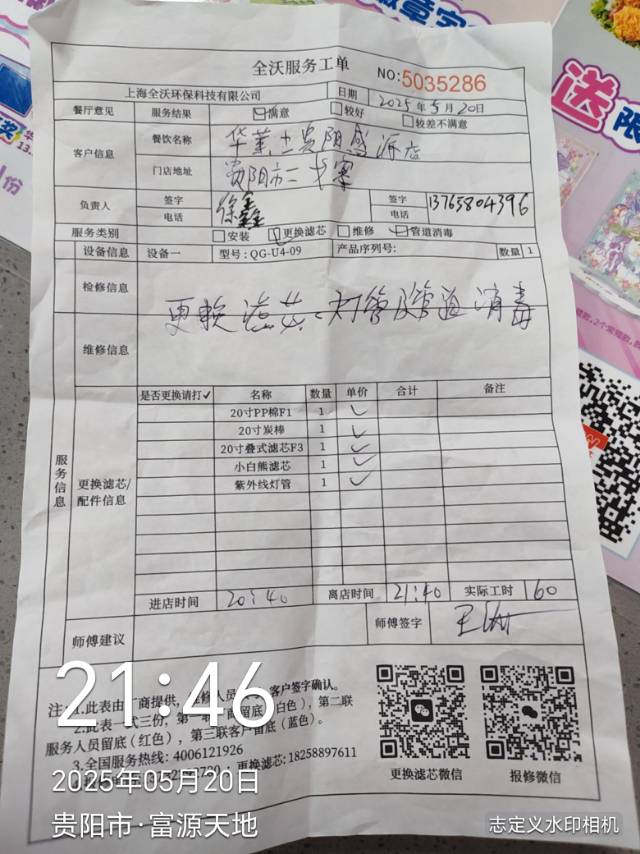 全沃服务工单
NO:5035286
上海全沃环保科技有限公司
日期 2025年5月20日
餐厅意见 服务结果 满意 较好 较差不满意
客户信息 餐饮名称 华莱士贵阳
门店地址 贵阳市
负责人 签字 徐鑫 签字
电话 电话 13765804396
服务类别 安装 更换滤芯 维修 管道消毒
设备信息 设备一 型号:QG-U4-09 产品序列号: 数量 1
检修信息
更换滤芯、灯管及管道消毒
维修信息
服务信息
更换滤芯/配件信息
是否更换请打✓ 名称 数量 单价 合计 备注
20寸PP棉F1 1 ✓
20寸炭棒 1 ✓
20寸叠式滤芯F3 1 ✓
小白熊滤芯 1 ✓
紫外线灯管 1 ✓
进店时间 20:40 离店时间 21:40 实际工时 60
师傅建议 师傅签字
注:1.此表由厂商提供,维修人员 客户签字确认。
2.此表一式三份,第一联 商留底(白色),第二联
服务人员留底(红色),第三联客户留底(蓝色)。
3.全国服务热线:4006121926
更换滤芯:18258897611
更换滤芯微信 报修微信
21:46
2025年05月20日
贵阳市·富源天地
志定义水印相机
送 限